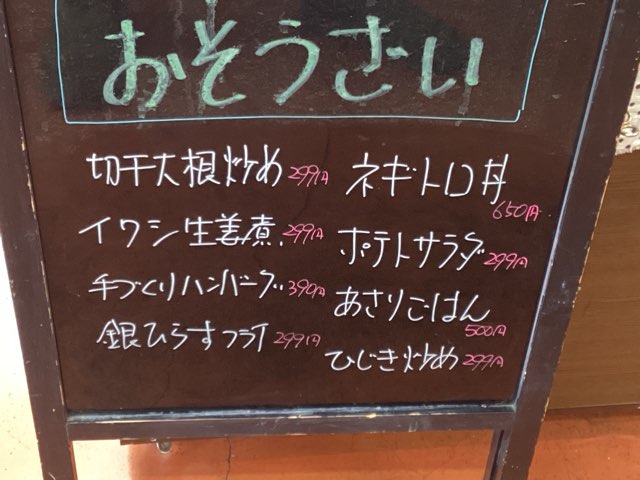 おそうさい
切干大根炒め 299円
イワシ生姜煮 299円
手づくりハンバーグ 390円
銀ひらすフライ 299円
ネギトロ丼
650円
ポテトサラダ 299円
あさりごはん
500円
ひじき炒め 299円